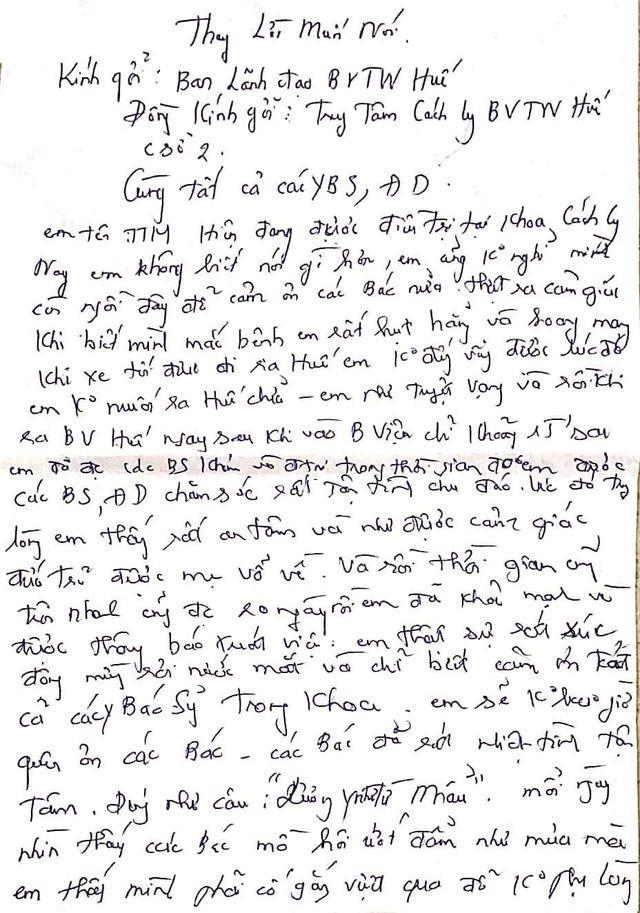 Thay Lời Muốn Nói.
Kính gởi: Ban Lãnh đạo BVTW Huế
Đồng Kính gởi: Trug Tâm Cách ly BVTW Huế
cơ sở 2.
Cùng tất cả các YBS, ĐD.
em tên đang được điều trị tại Khoa Cách ly
Nay em không biết nói gì hơn, em cũng ko nghỉ mình
còn ngồi đây để cảm ơn các Bác nửa. thật ra cảm giác
Khi biết mình mắc bệnh em rất hụt hẩng và hoang mang
Khi xe tới đưa đi ra Huế em ko đứng vững được lúc đó
em ko muốn ra Huế chửa - em như tuyệt vọng và rồi khi
ra BV Huế ngay sau khi vào B Viện chỉ khoảng 15' sau
em đã đc các BS khám và điều trị trong thời gian đó em được
các BS, ĐD chăm sóc rất tận tình chu đáo. lúc đó trong
lòng em thấy rất an tâm và như được cảm giác
đứa trẻ được mẹ vổ về. Và rồi thời gian cũg
trôi nhah cũg đc 20 ngày rồi em đã khỏe mạh và
được thôg báo xuất viện. em thật sự rất xúc
động mừg rơi nước mắt và chỉ biết cảm ơn tất
cả các y Bác Sỷ Trong Khoa. em sẻ ko bao giờ
quên ơn các Bác - các Bác đã rất nhiệt tình tận
Tâm. Đúg như câu: "Lương y như từ Mẩu". mỗi ngày
nhìn thấy các Bác mồ hôi ướt đẩm như mưa mà
em thấy mình phải cố gắg vượt qua để ko phụ lòng